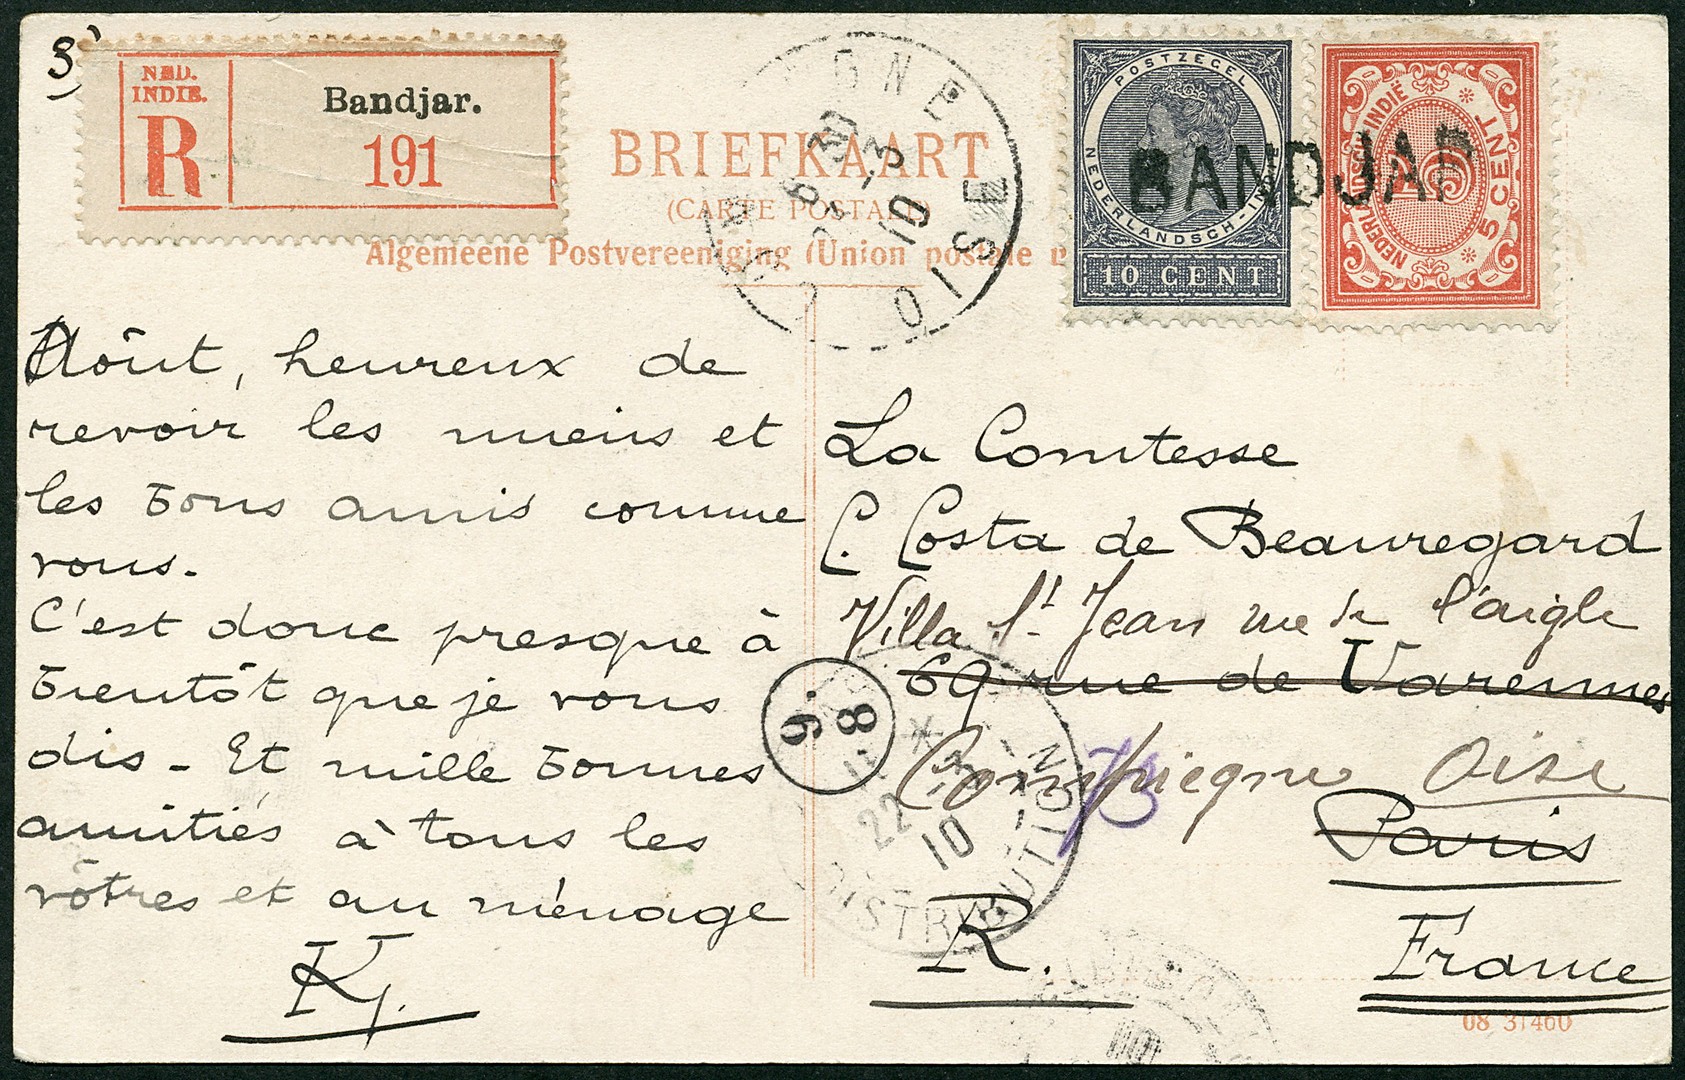 3'
NED.
INDIE.
R
Bandjar.
191
BRIEFKAART
(CARTE POSTALE)
Algemeene Postvereeniging (Union postale
POSTZEGEL
NEDERLANDSCH-INDIË
10 CENT
NEDERLANDSCH-INDIË
5 CENT
BANDJAR
OISE
6 30
22 - 3
10
Août, heureux de
revoir les miens et
les bons amis comme
vous.
C'est donc presque à
bientôt que je vous
dis - Et mille bonnes
amitiés à tous les
vôtres et au ménage
K.
La Comtesse
C. Costa de Beauregard
Villa St Jean rue de l'aigle
69 rue de Varennes
Compiegne Oise
Paris
R.
France
8
9
22
10
DISTRIBUTION
08 31460